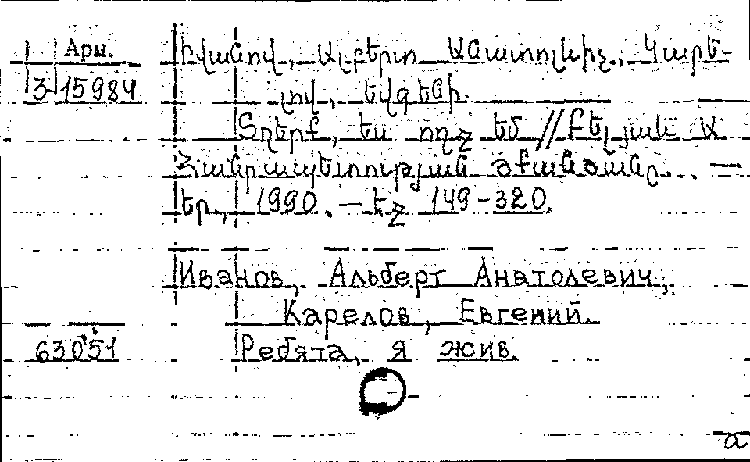 Арм. Իվանով, Ալբերտ Անատոլևիչ, Կարե-
3 15984 լով, Եվգենի.
Տղերք, ես ողջ եմ // Բելյաև Ա
Հանրապետության գանձանը... —
Եր., 1990. — էջ 149-320.
Иванов, Альберт Анатолевич,
Карелов, Евгений.
63051 Ребята, я жив.
a